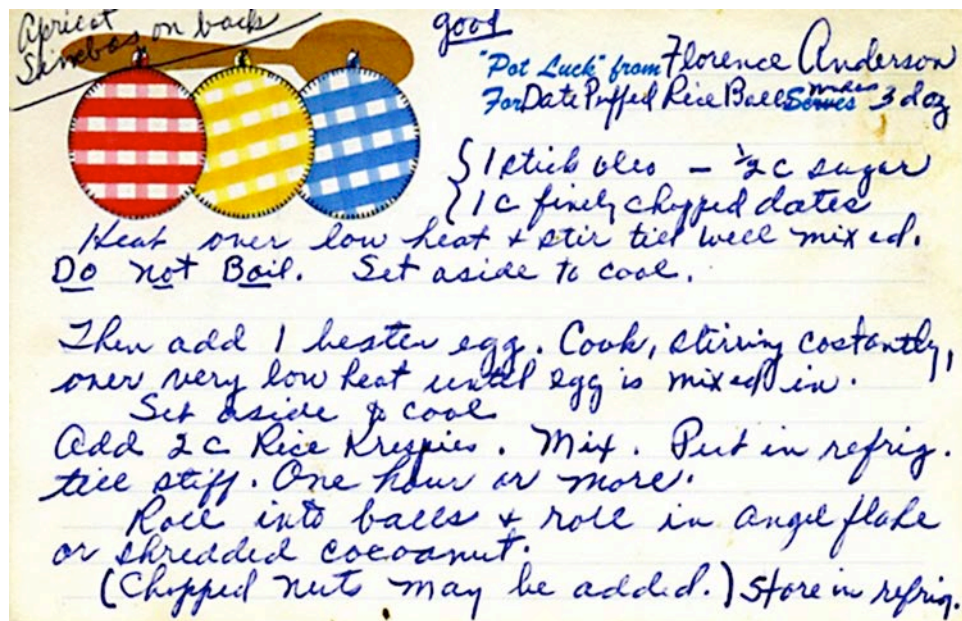 Apricot
on back
good
"Pot Luck" from Florence Anderson
For Date Puffed Rice Balls Serves makes 3 doz
{ 1 stick oleo - 1/2 c sugar
{ 1 c finely chopped dates
Heat over low heat + stir till well mixed.
Do Not Boil. Set aside to cool.
Then add 1 beaten egg. Cook, stirring costantly,
over very low heat until egg is mixed in.
Set aside to cool
Add 2 c Rice Krispies. Mix. Put in refrig.
till stiff. One hour or more.
Roll into balls + roll in angel flake
or shredded cocoanut.
(Chopped nuts may be added.) Store in refrig.